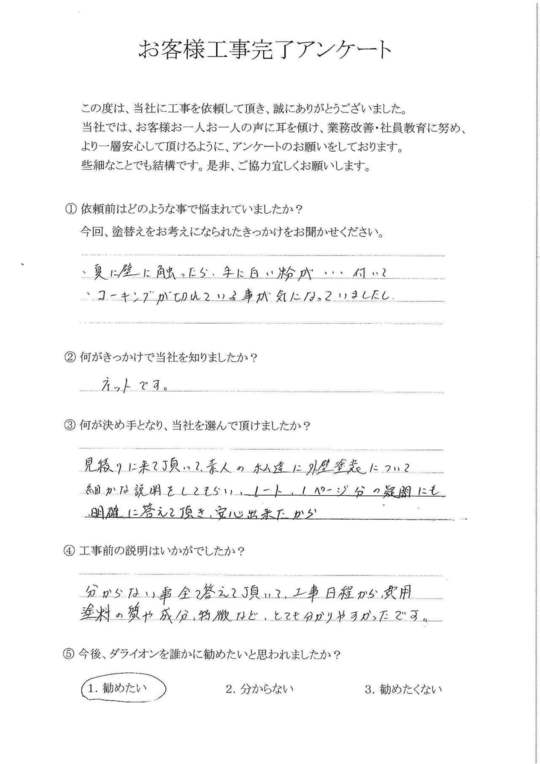 お客様工事完了アンケート
この度は、当社に工事を依頼して頂き、誠にありがとうございました。
当社では、お客様お一人お一人の声に耳を傾け、業務改善・社員教育に努め、
より一層安心して頂けるように、アンケートのお願いをしております。
些細なことでも結構です。是非、ご協力宜しくお願いします。
① 依頼前はどのような事で悩まれていましたか？
今回、塗替えをお考えになられたきっかけをお聞かせください。
・夏に壁に触ったら、手に白い粉が・・・付いて
・コーキングが切れている事が気になっていましたし
② 何がきっかけで当社を知りましたか？
ネットです。
③ 何が決め手となり、当社を選んで頂けましたか？
見積りに来て頂いて、素人の私達に外壁塗装について
細かな説明をしてもらい、ノート、1ページ分の疑問にも
明確に答えて頂き、安心出来たから
④ 工事前の説明はいかがでしたか？
分からない事全て答えて頂いて、工事日程から、費用
塗料の質や成分、特徴など、とても分かりやすかったです。
⑤ 今後、ダライオンを誰かに勧めたいと思われましたか？
1. 勧めたい 2. 分からない 3. 勧めたくない